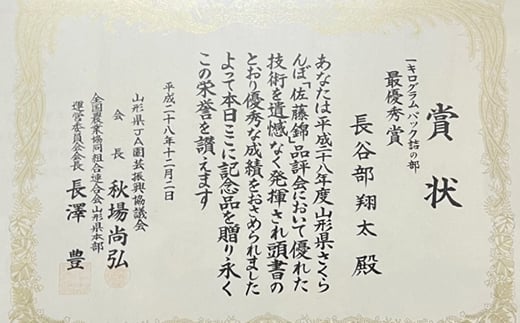 賞状
一キログラムパック詰の部
最優秀賞
長谷部翔太殿
あなたは平成二十八年度山形県さくら
んぼ「佐藤錦」品評会において優れた
技術を遺憾なく発揮され頭書の
とおり優秀な成績をおさめられました
よって本日ここに記念品を贈り永く
この栄誉を讃えます
平成二十八年十二月二日
山形県JA園芸振興協議会
会長秋場尚弘
全国農業協同組合連合会山形県本部
運営委員会会長長澤豊